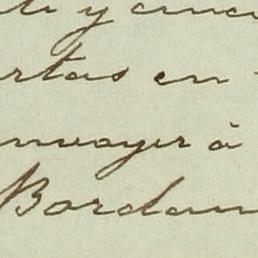 y cinc
rtas en
nvoyer à
Bordan